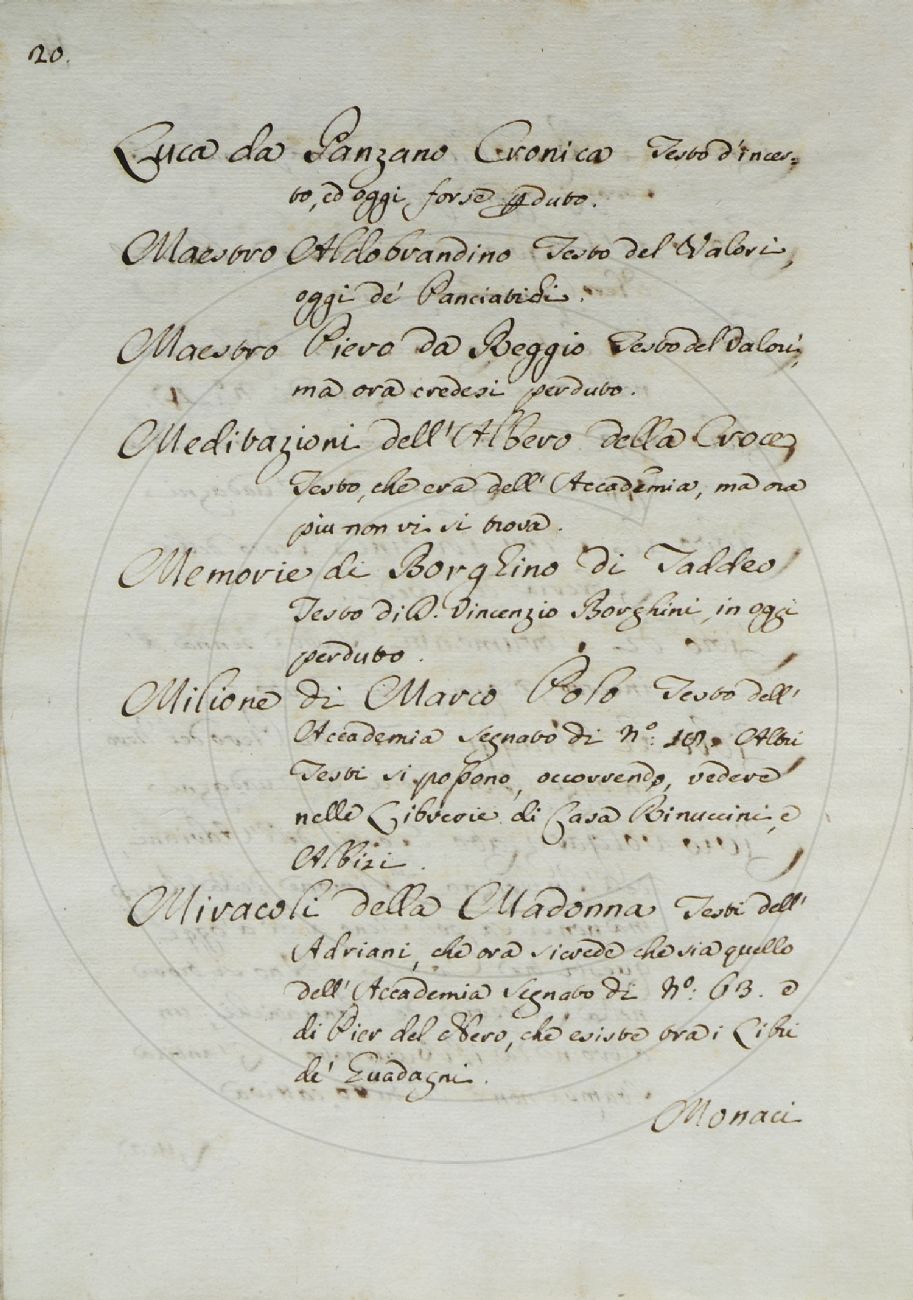 20.
Luca da Panzano Cronica Testo d'incer=
to, ed oggi forse pduto.
Maestro Aldobrandino Testo del Valori,
oggi de' Panciatichi.
Maestro Piero da Reggio Testo del Valori,
ma ora credesi perduto.
Meditazioni dell'Albero della Croce
Testo, che era dell'Accademia, ma ora
piu non vi si trova.
Memorie di Borghino di Taddeo
Testo di D. Vincenzio Borghini, in oggi
perduto.
Milione di Marco Polo Testo dell'
Accademia segnato di N.º Altri
Testi si poſsono, occorrendo, vedere
nelle Librerie di Casa Rinuccini, e
Albizi.
Miracoli della Madonna Testi dell'
Adriani, che ora si crede che sia quello
dell'Accademia segnato di N.º: 63. e
di Pier del Nero, che esiste tra i Libri
de' Guadagni.
Monaci